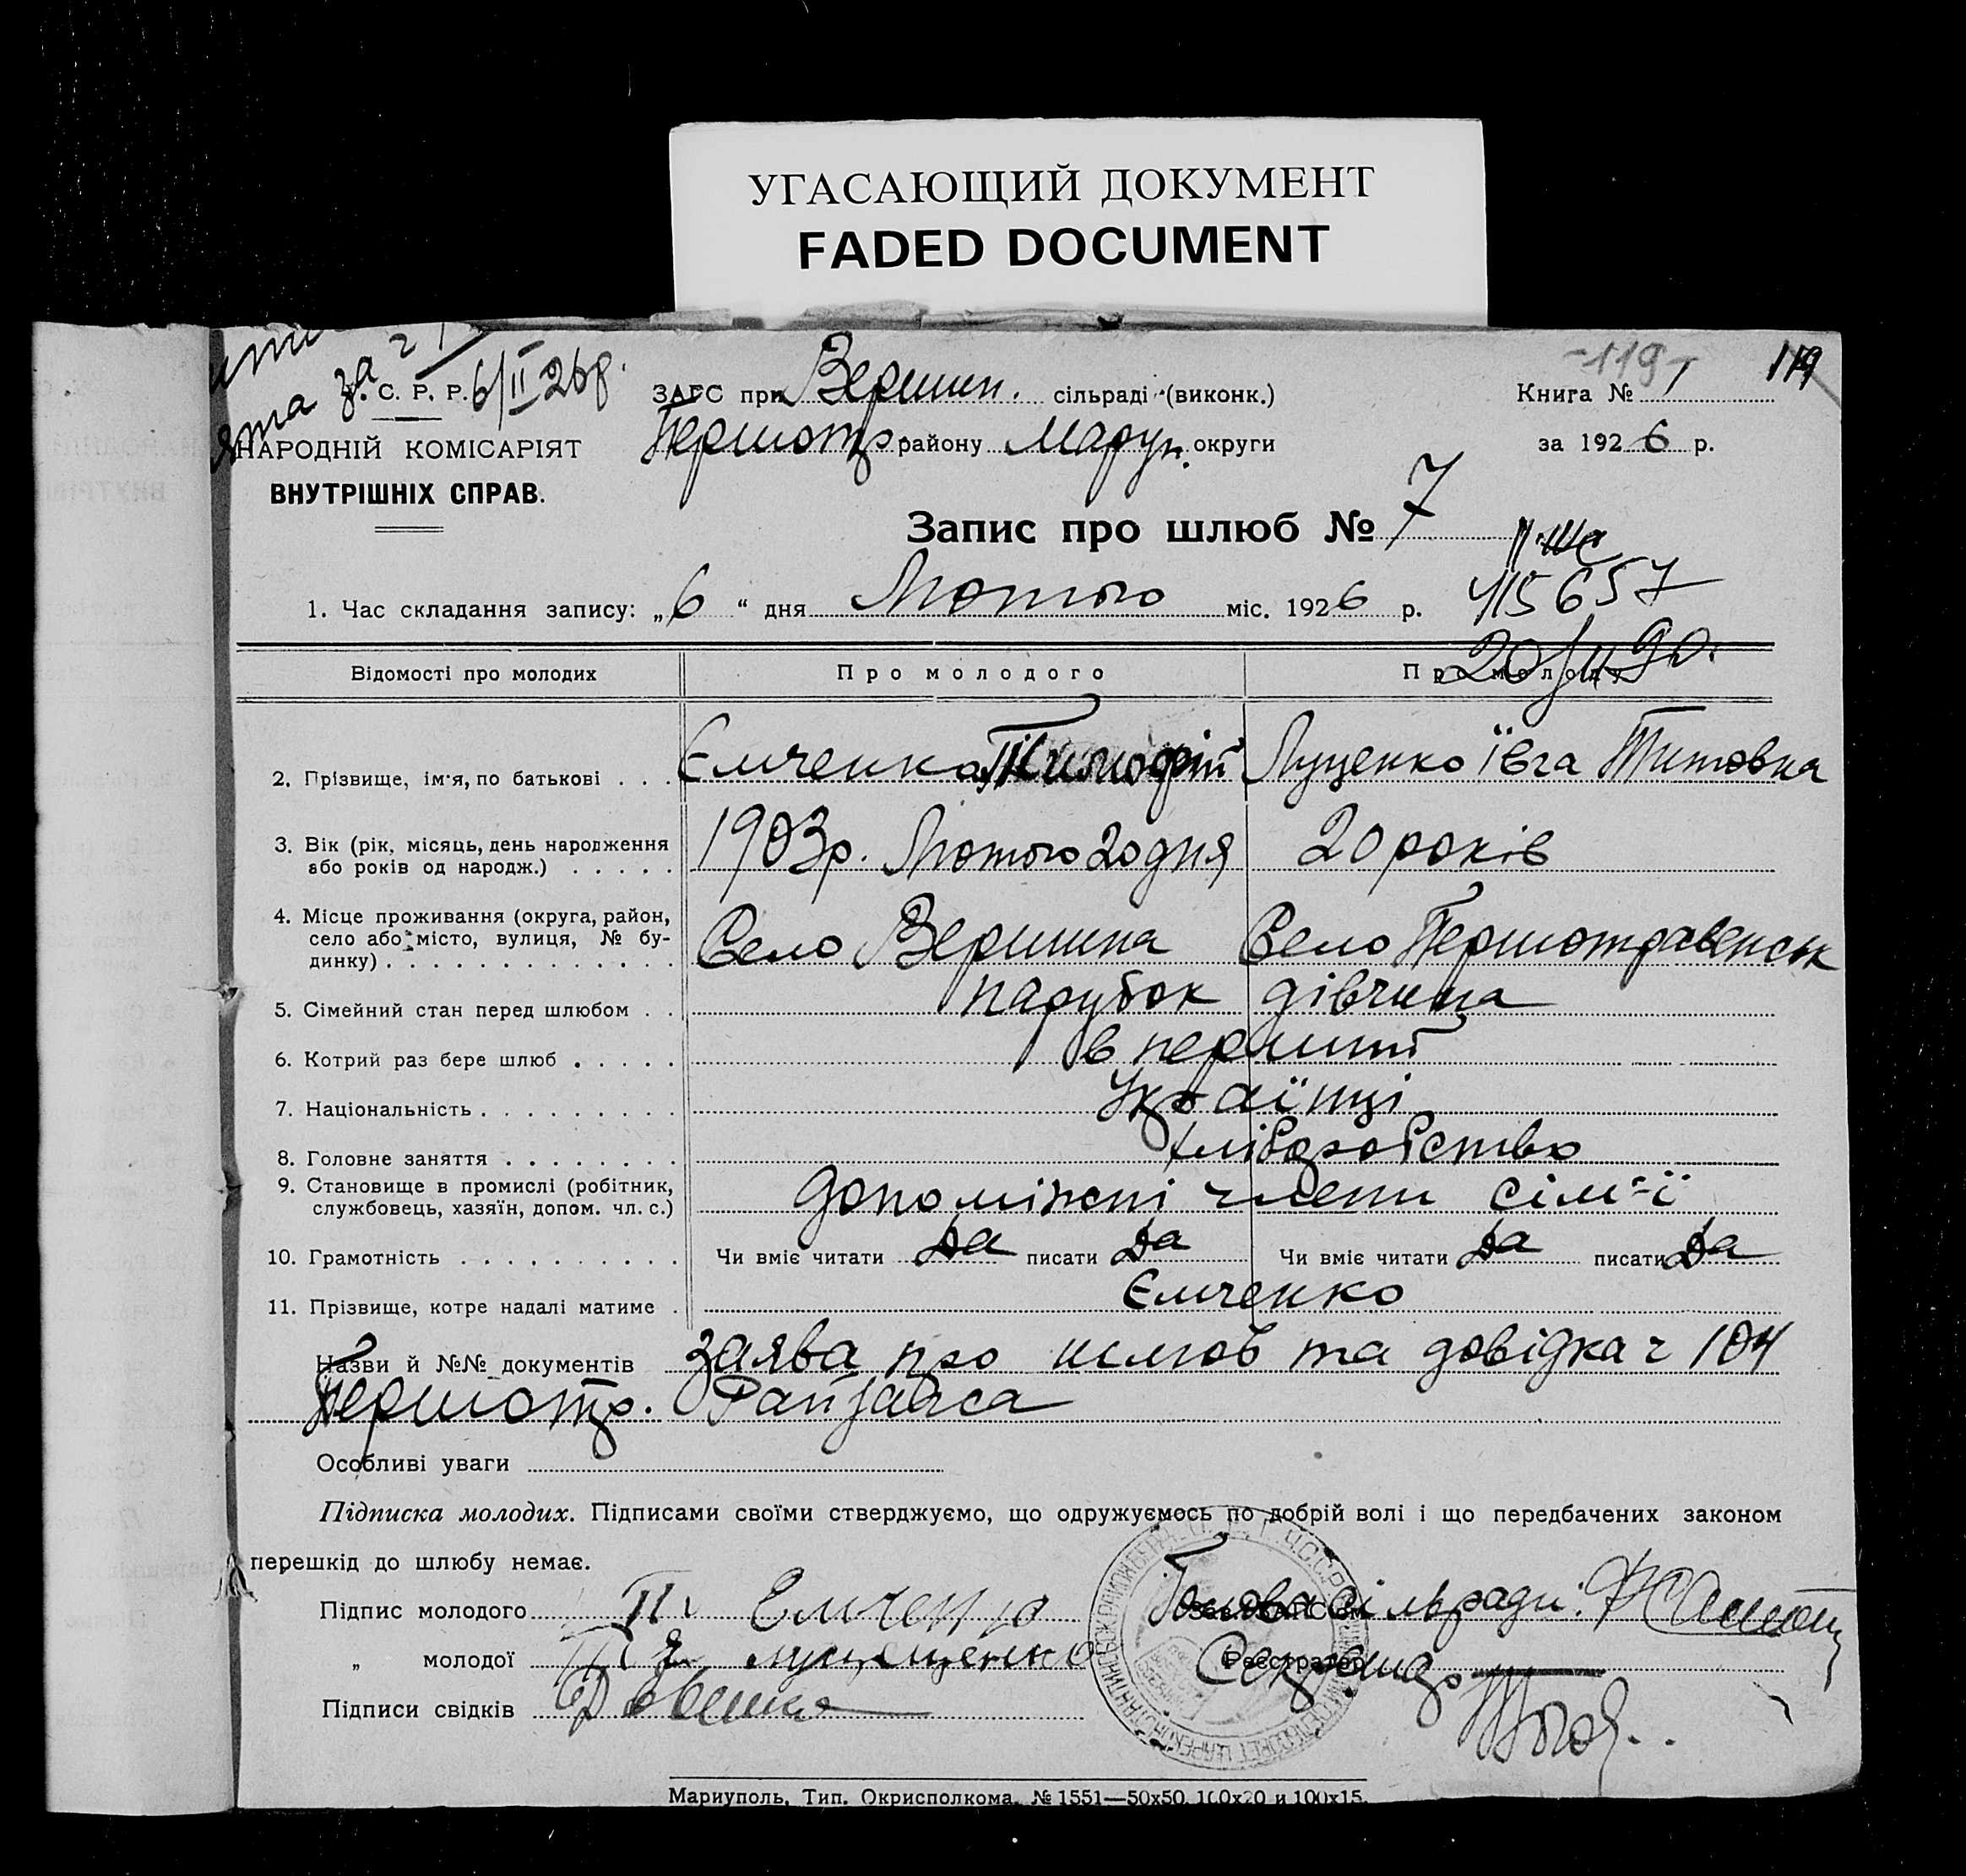 УГАСАЮЩИЙ ДОКУМЕНТ
FADED DOCUMENT
-119- 119
та за
С. Р. Р. 6/II 26 р.
ЗАГС при Вершин. сільраді (виконк.)
Книга № 1
Першотр. району Маруп. округи
за 1926 р.
НАРОДНІЙ КОМІСАРІЯТ
ВНУТРІШНІХ СПРАВ.
Запис про шлюб № 7
1. Час складання запису: „6“ дня Лютого міс. 1926 р.
115657
20/II 90.
Відомості про молодих
Про молодого
Про молоду
2. Прізвище, ім'я, по батькові . . . Ємченко Тимофій Луценко Ївга Титовна
3. Вік (рік, місяць, день народження
або років од народж.) . . . . . 1903 р. Лютого 20 дня 20 років
4. Місце проживання (округа, район,
село або місто, вулиця, № бу-
динку) . . . . . . . . . . . . . Село Вершина Село Першотравенськ
5. Сімейний стан перед шлюбом . . парубок дівчина
6. Котрий раз бере шлюб . . . . . в перший
7. Національність . . . . . . . . . . Українці
8. Головне заняття . . . . . . . . хліборобство
9. Становище в промислі (робітник,
службовець, хазяїн, допом. чл. с.) допоміжні члени сім'ї
10. Грамотність . . . . . . . . . . Чи вміє читати да писати да Чи вміє читати да писати да
11. Прізвище, котре надалі матиме . Ємченко
Назви й №№ документів заява про шлюб та довідка ч 104
Першотр. Райзагса
Особливі уваги
Підписка молодих. Підписами своїми стверджуємо, що одружуємось по добрій волі і що передбачених законом
перешкід до шлюбу немає.
Підпис молодого Емченко
Голова сільради:
„ молодої
Реєстратор
Секретар
Підписи свідків
Мариуполь, Тип. Окрисполкома. № 1551—50x50, 100x20 и 100x15.